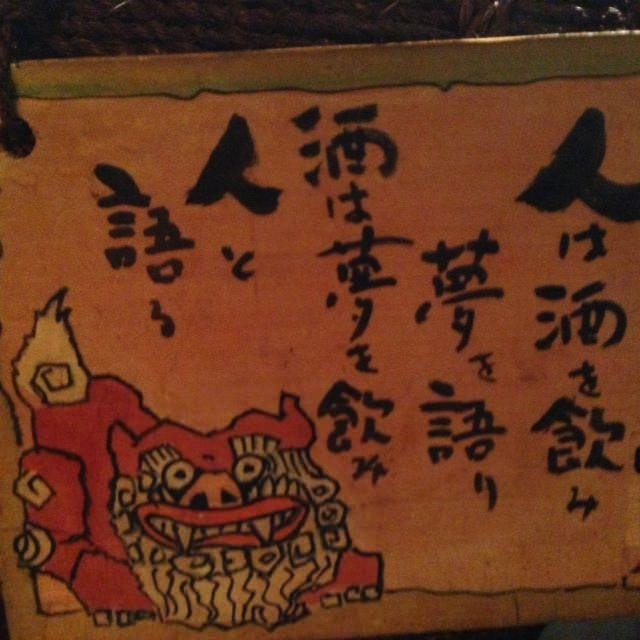 人は酒を飲み
夢を語り
酒は夢を飲み
人と
語る